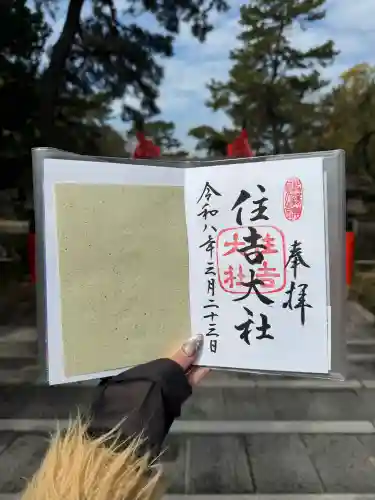 奉拝
住吉大社
令和八年三月二十三日
住吉
大社